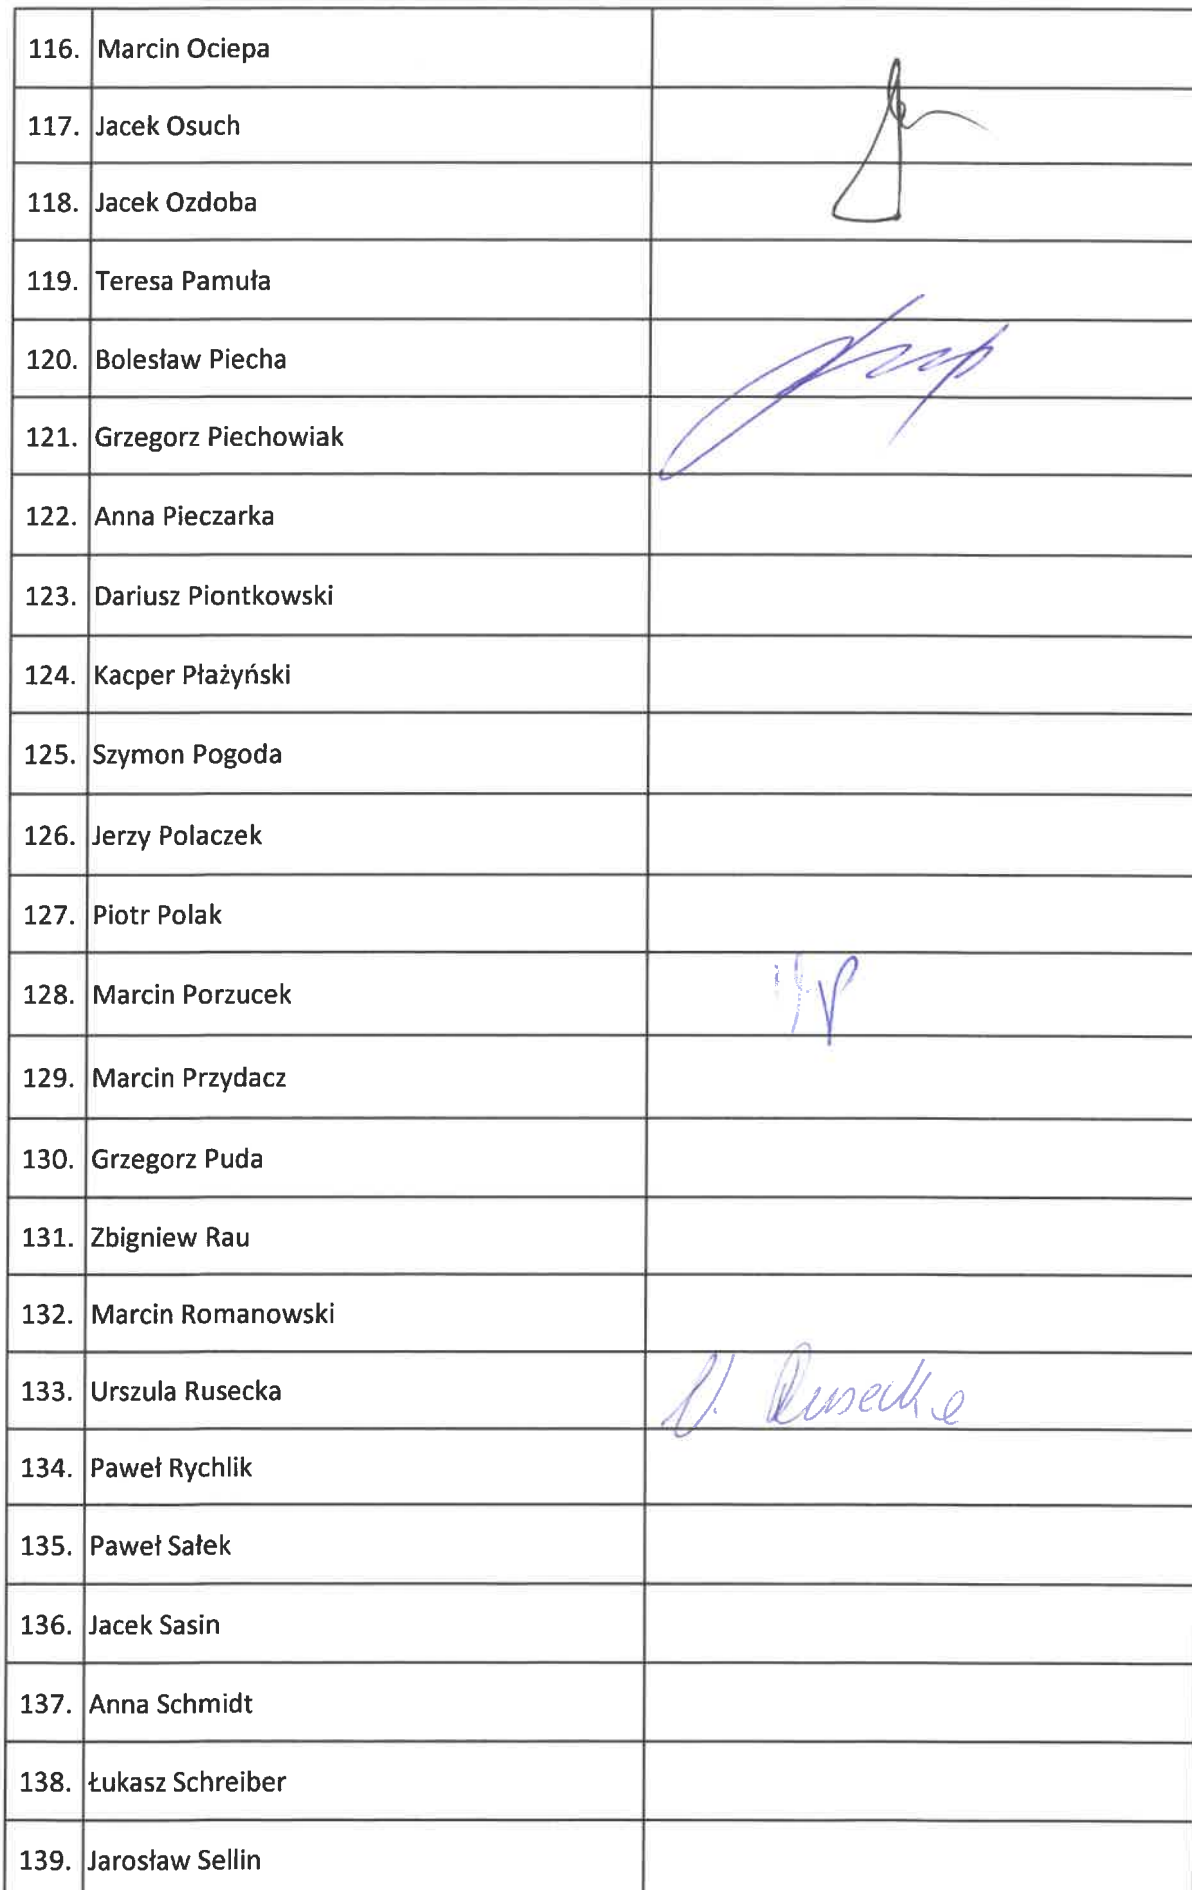 116. Marcin Ociepa
117. Jacek Osuch
118. Jacek Ozdoba
119. Teresa Pamuła
120. Bolesław Piecha
121. Grzegorz Piechowiak
122. Anna Pieczarka
123. Dariusz Piontkowski
124. Kacper Płażyński
125. Szymon Pogoda
126. Jerzy Polaczek
127. Piotr Polak
128. Marcin Porzucek
129. Marcin Przydacz
130. Grzegorz Puda
131. Zbigniew Rau
132. Marcin Romanowski
133. Urszula Rusecka U. Rusecka
134. Paweł Rychlik
135. Paweł Sałek
136. Jacek Sasin
137. Anna Schmidt
138. Łukasz Schreiber
139. Jarosław Sellin